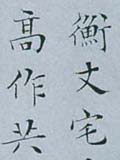 衡丈宅
高作共